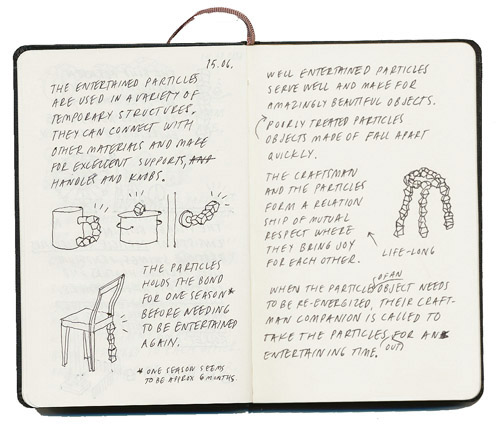 15.06.
THE ENTERTAINED PARTICLES
ARE USED IN A VARIETY OF
TEMPORARY STRUCTURES.
THEY CAN CONNECT WITH
OTHER MATERIALS AND MAKE
FOR EXCELLENT SUPPORTS, AND
HANDLES AND KNOBS.
THE PARTICLES
HOLDS THE BOND
FOR ONE SEASON*
BEFORE NEEDING
TO BE ENTERTAINED
AGAIN.
* ONE SEASON SEEMS
TO BE APROX 6 MONTHS.
WELL ENTERTAINED PARTICLES
SERVE WELL AND MAKE FOR
AMAZINGLY BEAUTIFUL OBJECTS.
POORLY TREATED PARTICLES
OBJECTS MADE OF FALL APART
QUICKLY.
THE CRAFTSMAN
AND THE PARTICLES
FORM A RELATION
SHIP OF MUTUAL
RESPECT WHERE
THEY BRING JOY
FOR EACH OTHER.
LIFE-LONG
WHEN THE PARTICLE OF AN OBJECT NEEDS
TO BE RE-ENERGIZED, THEIR CRAFT-
MAN COMPANION IS CALLED TO
TAKE THE PARTICLES OUT FOR AN
ENTERTAINING TIME.